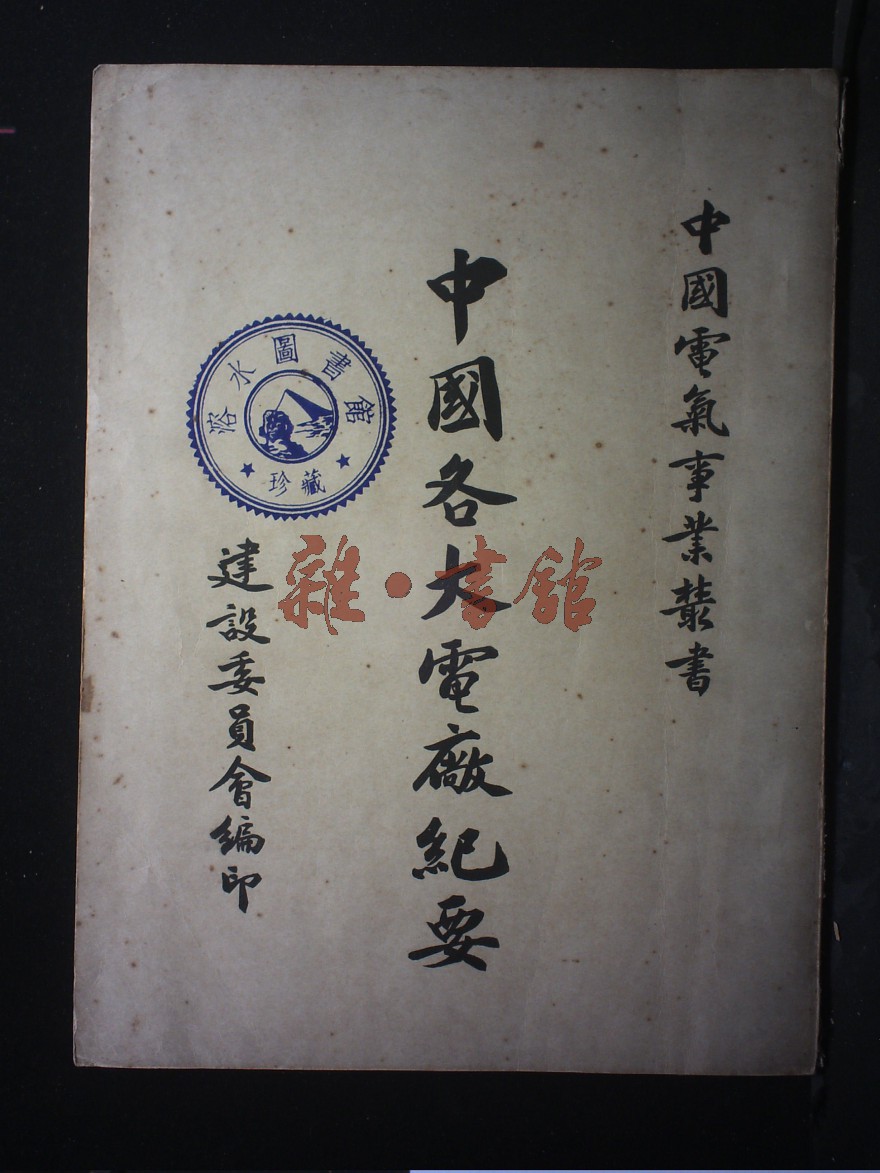 中國電氣事業叢書
中國各大電廠紀要
建設委員會編印
水圖書館
珍藏
雜·書館